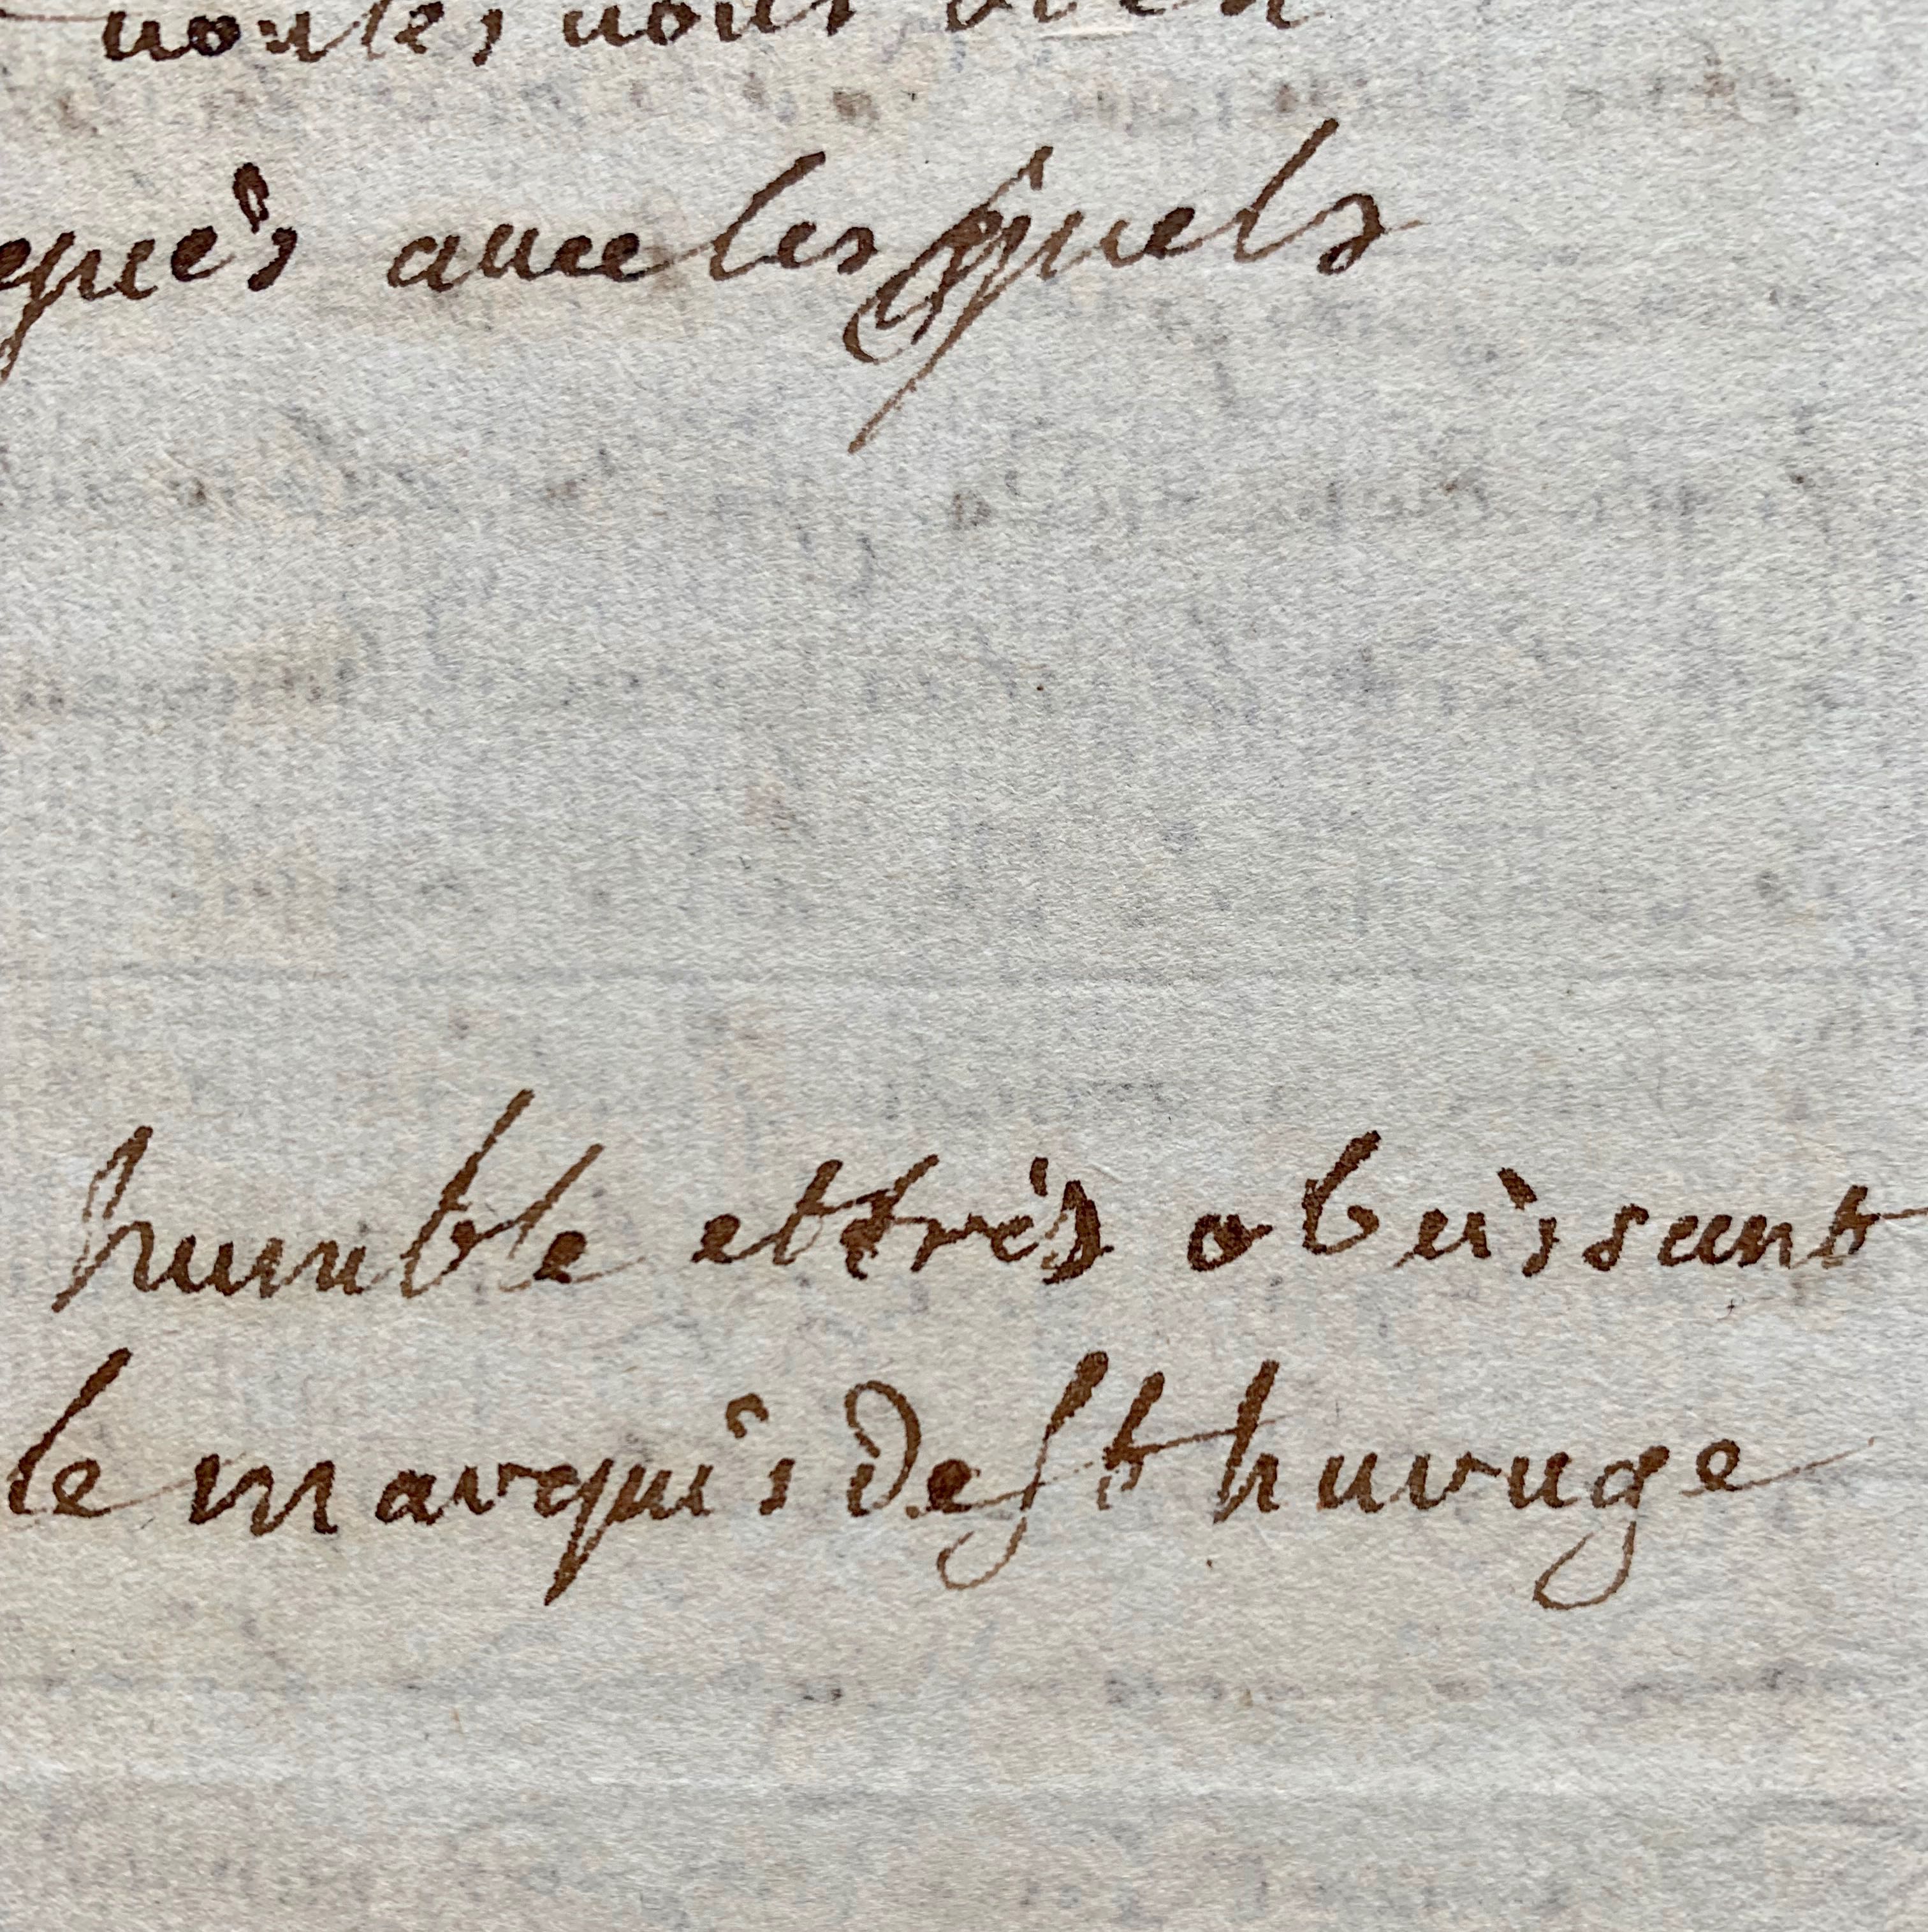 voules vous bien
auec les quels
humble et très obeissant
le marquis de st huruge